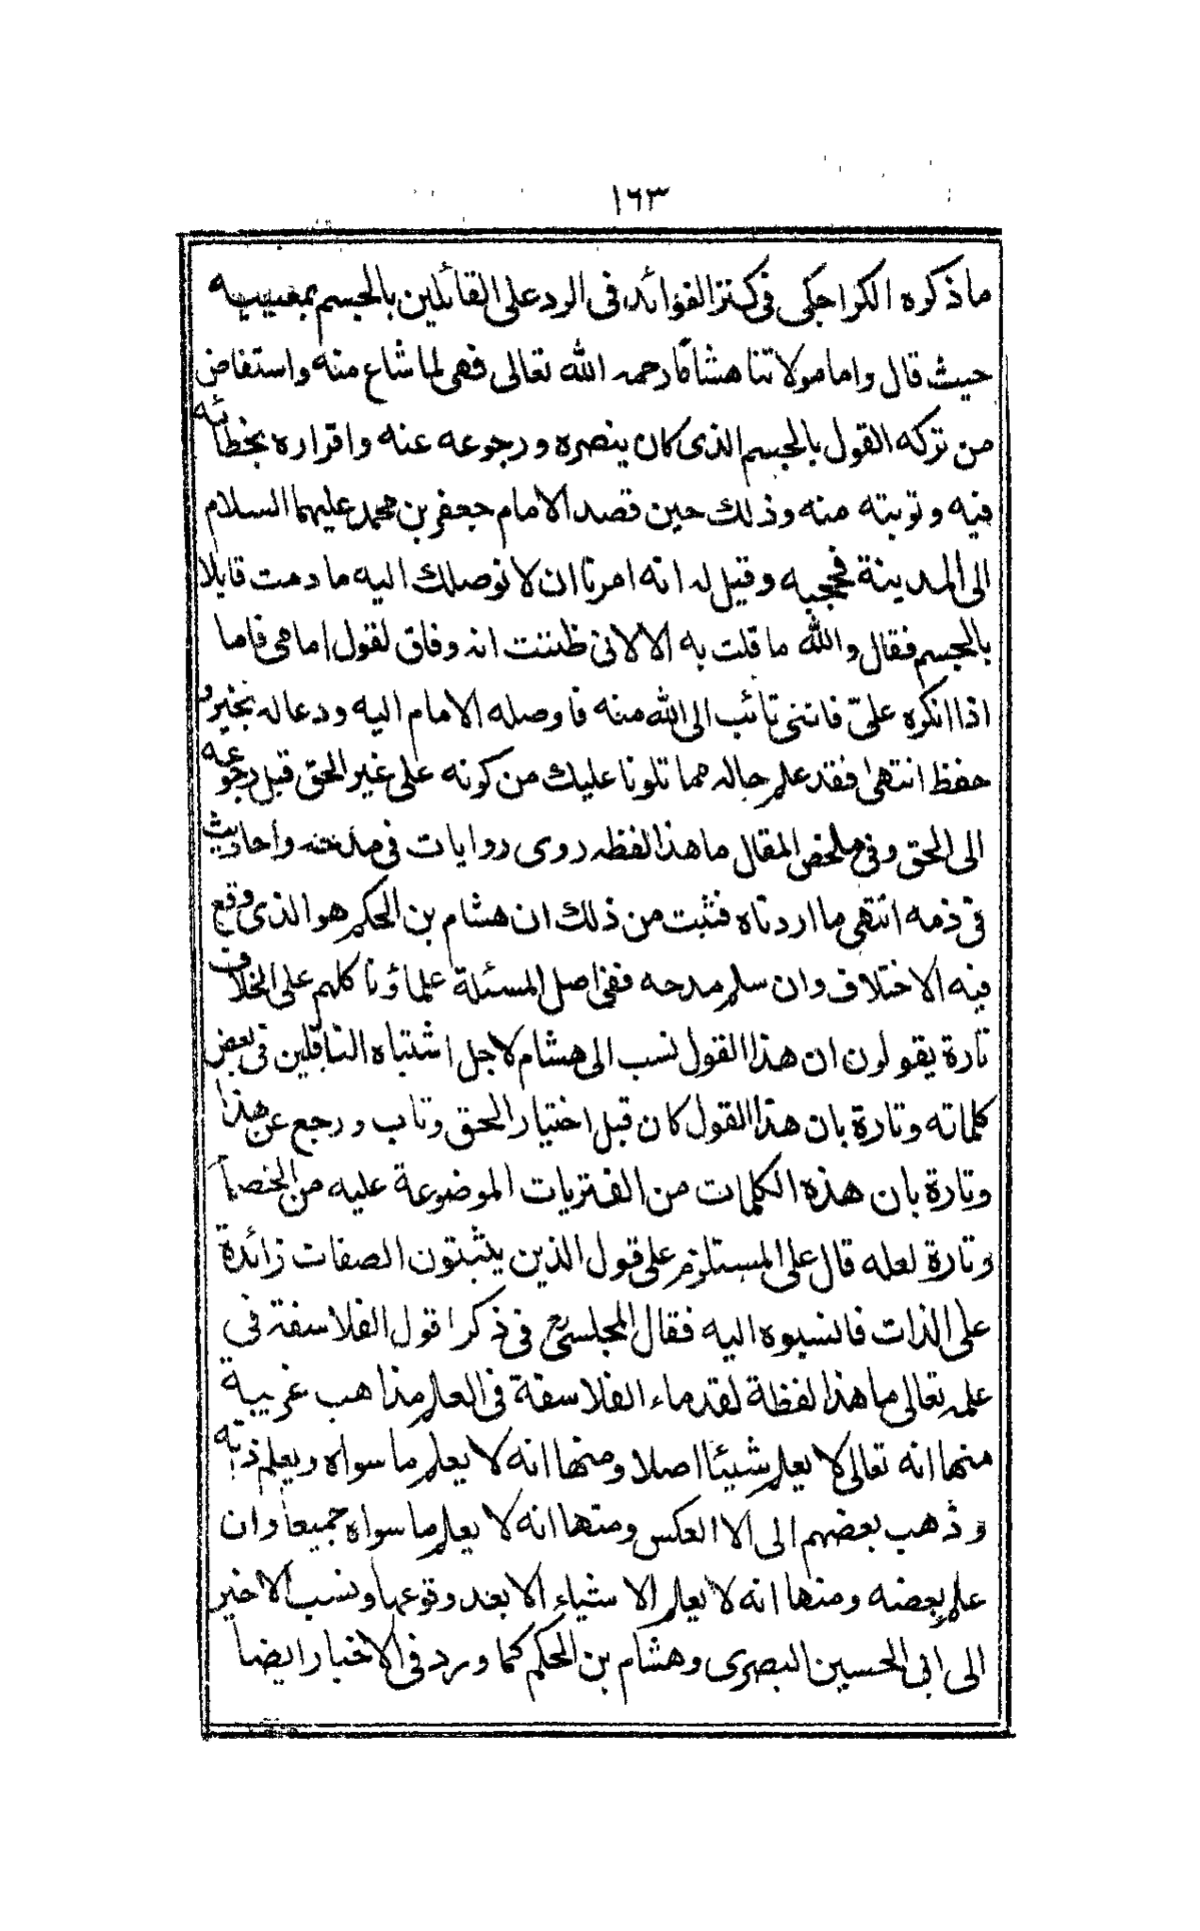 ١٦٣
ما ذكره الكراجكى فى كنز الفوائد فى الرد على القائلين بالجسم بمعنييه
حيث قال واما مولاتنا هشاما رحمه الله تعالى فهى لما شاع منه واستفاض
من تركه القول بالجسم الذى كان ينصره ورجوعه عنه واقراره بخطائه
فيه وتوبته منه وذلك حين قصد الامام جعفر بن محمد عليهما السلام
الى المدينة فحجبه وقيل له انه امرنا ان لا نوصلك اليه ما دمت قايلا
بالجسم فقال والله ما قلت به الا لانى ظننت انه وفاق لقول امامى فاما
اذا انكره علىّ فاننى تائب الى الله منه فاوصله الامام اليه ودعا له بخير و
حفظ انتهى فقد علم حاله مما تلونا عليك من كونه على غير الحق قبل رجوعه
الى الحق وفى ملخص المقال ما هذا لفظه روى روايات فى مدحه وأحاديث
فى ذمه انتهى ما اردناه فثبت من ذلك ان هشام بن الحكم هو الذى وقع
فيه الاختلاف وان سلم مدحه ففى اصل المسئلة علماؤنا كلهم على الخلاف
تارة يقولون ان هذا القول نسب الى هشام لاجل اشتباه الناقلين فى بعض
كلماته وتارة بان هذا القول كان قبل اختيار الحق وتاب ورجع عن هذا
وتارة بان هذه الكلمات من الفتريات الموضوعة عليه من الخصماء
وتارة لعله قال على المستلزم على قول الذين يثبتون الصفات زائدة
على الذات فانسبوه اليه فقال المجلسى فى ذكر اقول الفلاسفة فى
علمه تعالى ما هذا لفظة لقدماء الفلاسفة فى العلم مذاهب غريبة
منها انه تعالى لا يعلم شيئا اصلا ومنها انه لا يعلم ما سواه ويعلم ذاته
وذهب بعضهم الى الا العكس ومنها انه لا يعلم ما سواه جميعا وان
علم بعضه ومنها انه لا يعلم الاشياء الا بعد وقوعها ونسب الاخير
الى ابى الحسين البصرى وهشام بن الحكم كما ورد فى الاخبار ايضا